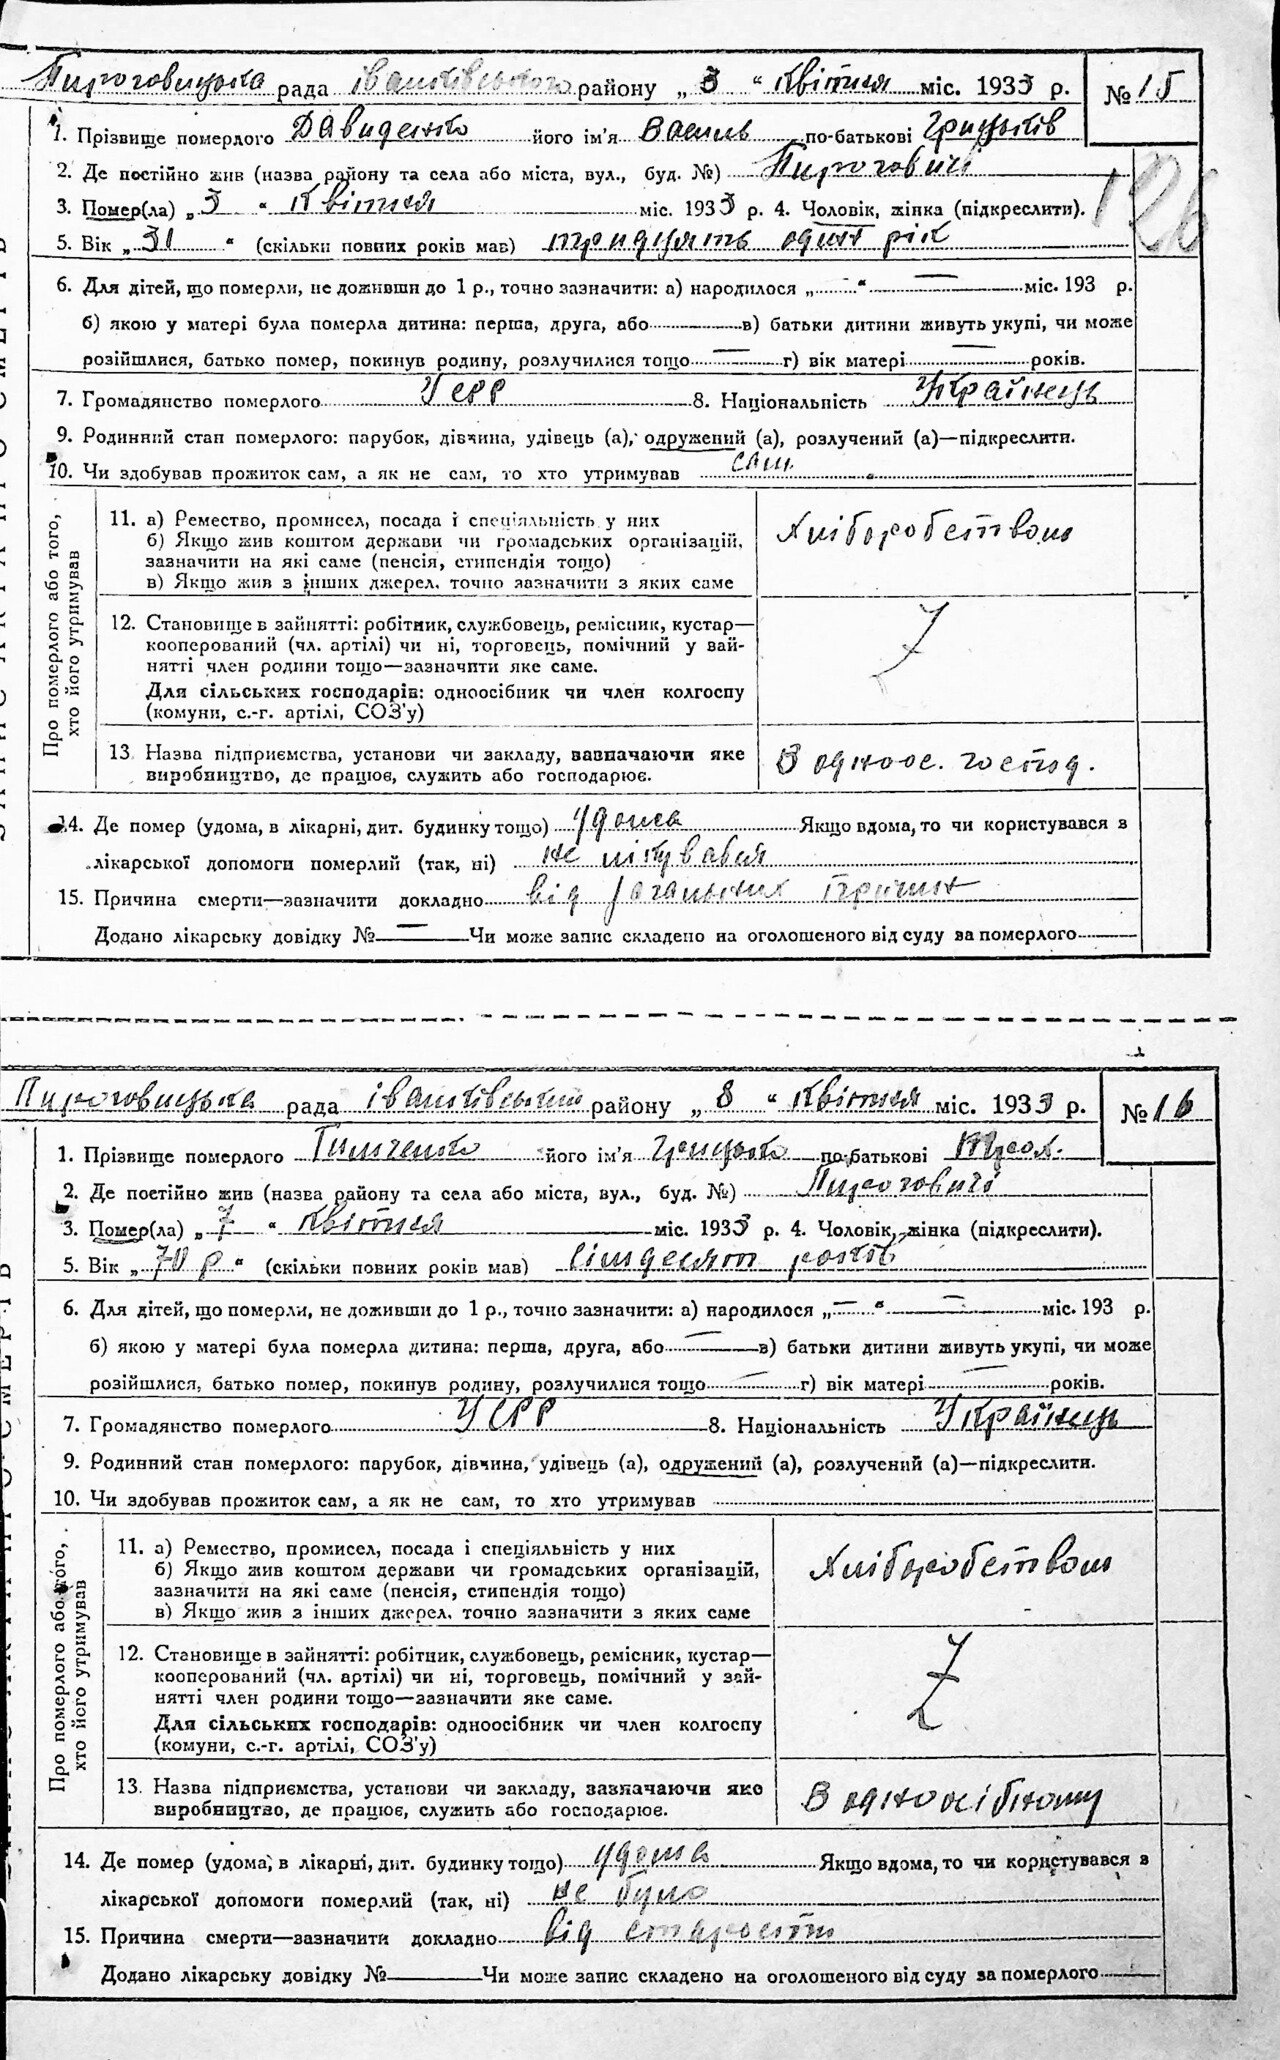 Пироговицька рада іванківського району „ 3 “ квітня міс. 1933 р. № 15
1. Прізвище померлого Давиденко його ім'я Василь по-батькові Грицьків
2. Де постійно жив (назва району та села або міста, вул., буд. №) Пироговичі
3. Помер(ла) „ 3 “ квітня міс. 1933 р. 4. Чоловік, жінка (підкреслити).
126
5. Вік „ 31 “ (скільки повних років мав) тридцять один рік
6. Для дітей, що померли, не доживши до 1 р., точно зазначити: а) народилося „ — “ — міс. 193 р.
б) якою у матері була померла дитина: перша, друга, або — в) батьки дитини живуть укупі, чи може
розійшлися, батько помер, покинув родину, розлучилися тощо — г) вік матері — років.
7. Громадянство померлого УСРР 8. Національність Українець
9. Родинний стан померлого: парубок, дівчина, удівець (а), одружений (а), розлучений (а)—підкреслити.
10. Чи здобував прожиток сам, а як не сам, то хто утримував сам
Про померлого або того,
хто його утримував
11. а) Ремество, промисел, посада і спеціяльність у них
б) Якщо жив коштом держави чи громадських організацій,
зазначити на які саме (пенсія, стипендія тощо)
в) Якщо жив з інших джерел, точно зазначити з яких саме
Хліборобством
12. Становище в зайнятті: робітник, службовець, ремісник, кустар—
кооперований (чл. артілі) чи ні, торговець, помічний у зай-
нятті член родини тощо—зазначити яке саме.
Для сільських господарів: одноосібник чи член колгоспу
(комуни, с.-г. артілі, СОЗ'у)
13. Назва підприємства, установи чи закладу, зазначаючи яке
виробництво, де працює, служить або господарює.
В однос. господ.
14. Де помер (удома, в лікарні, дит. будинку тощо) удома Якщо вдома, то чи користувався з
лікарської допомоги померлий (так, ні) не лікувався
15. Причина смерти—зазначити докладно від загальних причин
Додано лікарську довідку № — Чи може запис складено на оголошеного від суду за померлого
Пироговицька рада іванківський району „ 8 “ квітня міс. 1933 р. № 16
1. Прізвище померлого Тимченко його ім'я Грицько по-батькові
2. Де постійно жив (назва району та села або міста, вул., буд. №) Пироговичі
3. Помер(ла) „ 7 “ квітня міс. 1933 р. 4. Чоловік, жінка (підкреслити).
5. Вік „ 70 р “ (скільки повних років мав) сімдесят років
6. Для дітей, що померли, не доживши до 1 р., точно зазначити: а) народилося „ — “ — міс. 193 р.
б) якою у матері була померла дитина: перша, друга, або — в) батьки дитини живуть укупі, чи може
розійшлися, батько помер, покинув родину, розлучилися тощо — г) вік матері — років.
7. Громадянство померлого УСРР 8. Національність Українець
9. Родинний стан померлого: парубок, дівчина, удівець (а), одружений (а), розлучений (а)—підкреслити.
10. Чи здобував прожиток сам, а як не сам, то хто утримував
Про померлого або того,
хто його утримував
11. а) Ремество, промисел, посада і спеціяльність у них
б) Якщо жив коштом держави чи громадських організацій,
зазначити на які саме (пенсія, стипендія тощо)
в) Якщо жив з інших джерел, точно зазначити з яких саме
Хліборобством
12. Становище в зайнятті: робітник, службовець, ремісник, кустар—
кооперований (чл. артілі) чи ні, торговець, помічний у зай-
нятті член родини тощо—зазначити яке саме.
Для сільських господарів: одноосібник чи член колгоспу
(комуни, с.-г. артілі, СОЗ'у)
13. Назва підприємства, установи чи закладу, зазначаючи яке
виробництво, де працює, служить або господарює.
В одноосібному
14. Де помер (удома, в лікарні, дит. будинку тощо) удома Якщо вдома, то чи користувався з
лікарської допомоги померлий (так, ні) не було
15. Причина смерти—зазначити докладно від старости
Додано лікарську довідку № Чи може запис складено на оголошеного від суду за померлого